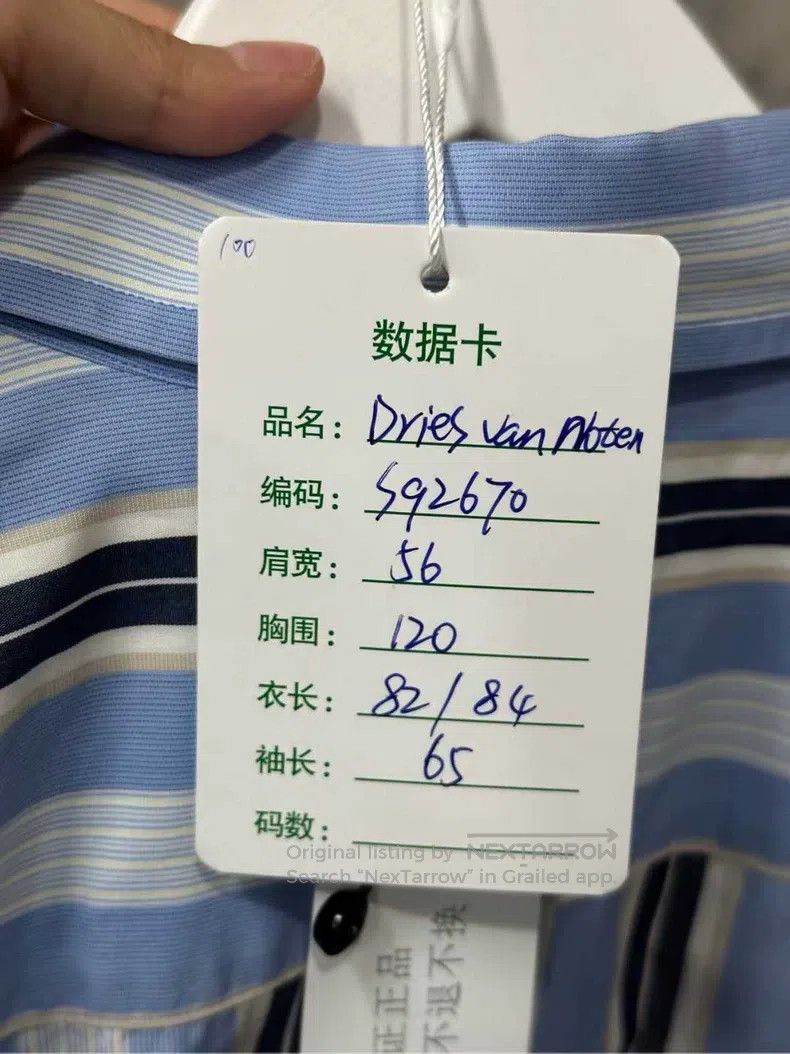 100
数据卡
品名: Dries van Noten
编码: S92670
肩宽: 56
胸围: 120
衣长: 82/84
袖长: 65
码数:
Original listing by NEXTARROW
Search "NexTarrow" in Grailed app.
证正品
不退不换